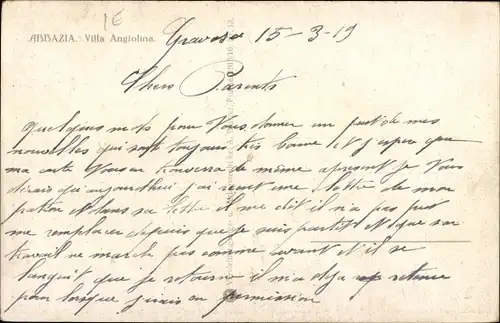 1E
ABBAZIA. Villa Angiolina.
Gravosa 15-3-19
Chers Parents
quelques mots pour Vous donner un peut de mes
nouvelles qui sont toujours très bonne et j'espere que
ma carte Vous en trouvera de même apresent je Vous
dirais qui aujourdhui j'ai recut une lettre de mon
patron et dans sa lettre il me dit il n'a pas put
me remplacer depuis que je suis partit et que son
travail ne marche pas comme avant et il se
languit que je retourne il m'a deja retenue
pour lorsque j'irais en permission